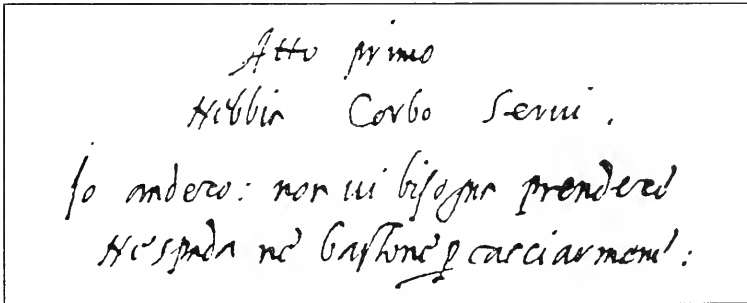 Atto primo
Nebbia Corbo Servi.
Io andero: non vi bisogna prendere
Ne spada ne bastone p cacciarmene: